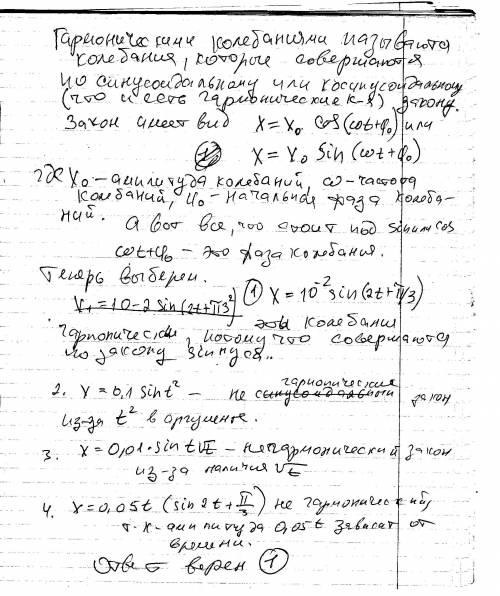 Гармоническими колебаниями называются
колебания, которые совершаются
по синусоидальному или косинусоидальному
(что и есть гармонические к-я) закону.
Закон имеет вид x = x₀ cos(ωt+φ₀) или
x = x₀ sin(ωt+φ₀)
где x₀ - амплитуда колебаний, ω - частота
колебаний, φ₀ - начальная фаза колеба-
ний. А вот все, что стоит под sin или cos
ωt+φ₀ - это фаза колебания.
Теперь выберем. ① x = 10⁻² sin(2t+π/3)
x₁ = 10-2 sin(2t+π3²)
эти колебания
гармонически, потому что совершаются
по закону синуса..
2. x = 0,1 sin t² - не синусоидальный гармонический закон
из-за t² в аргументе.
3. x = 0,01·sin t√t - негармонический закон
из-за наличия √t
4. x = 0,05t (sin 2t + π/3) не гармонический,
т.к. амплитуда 0,05t зависит от
времени.
Ответ верен ①